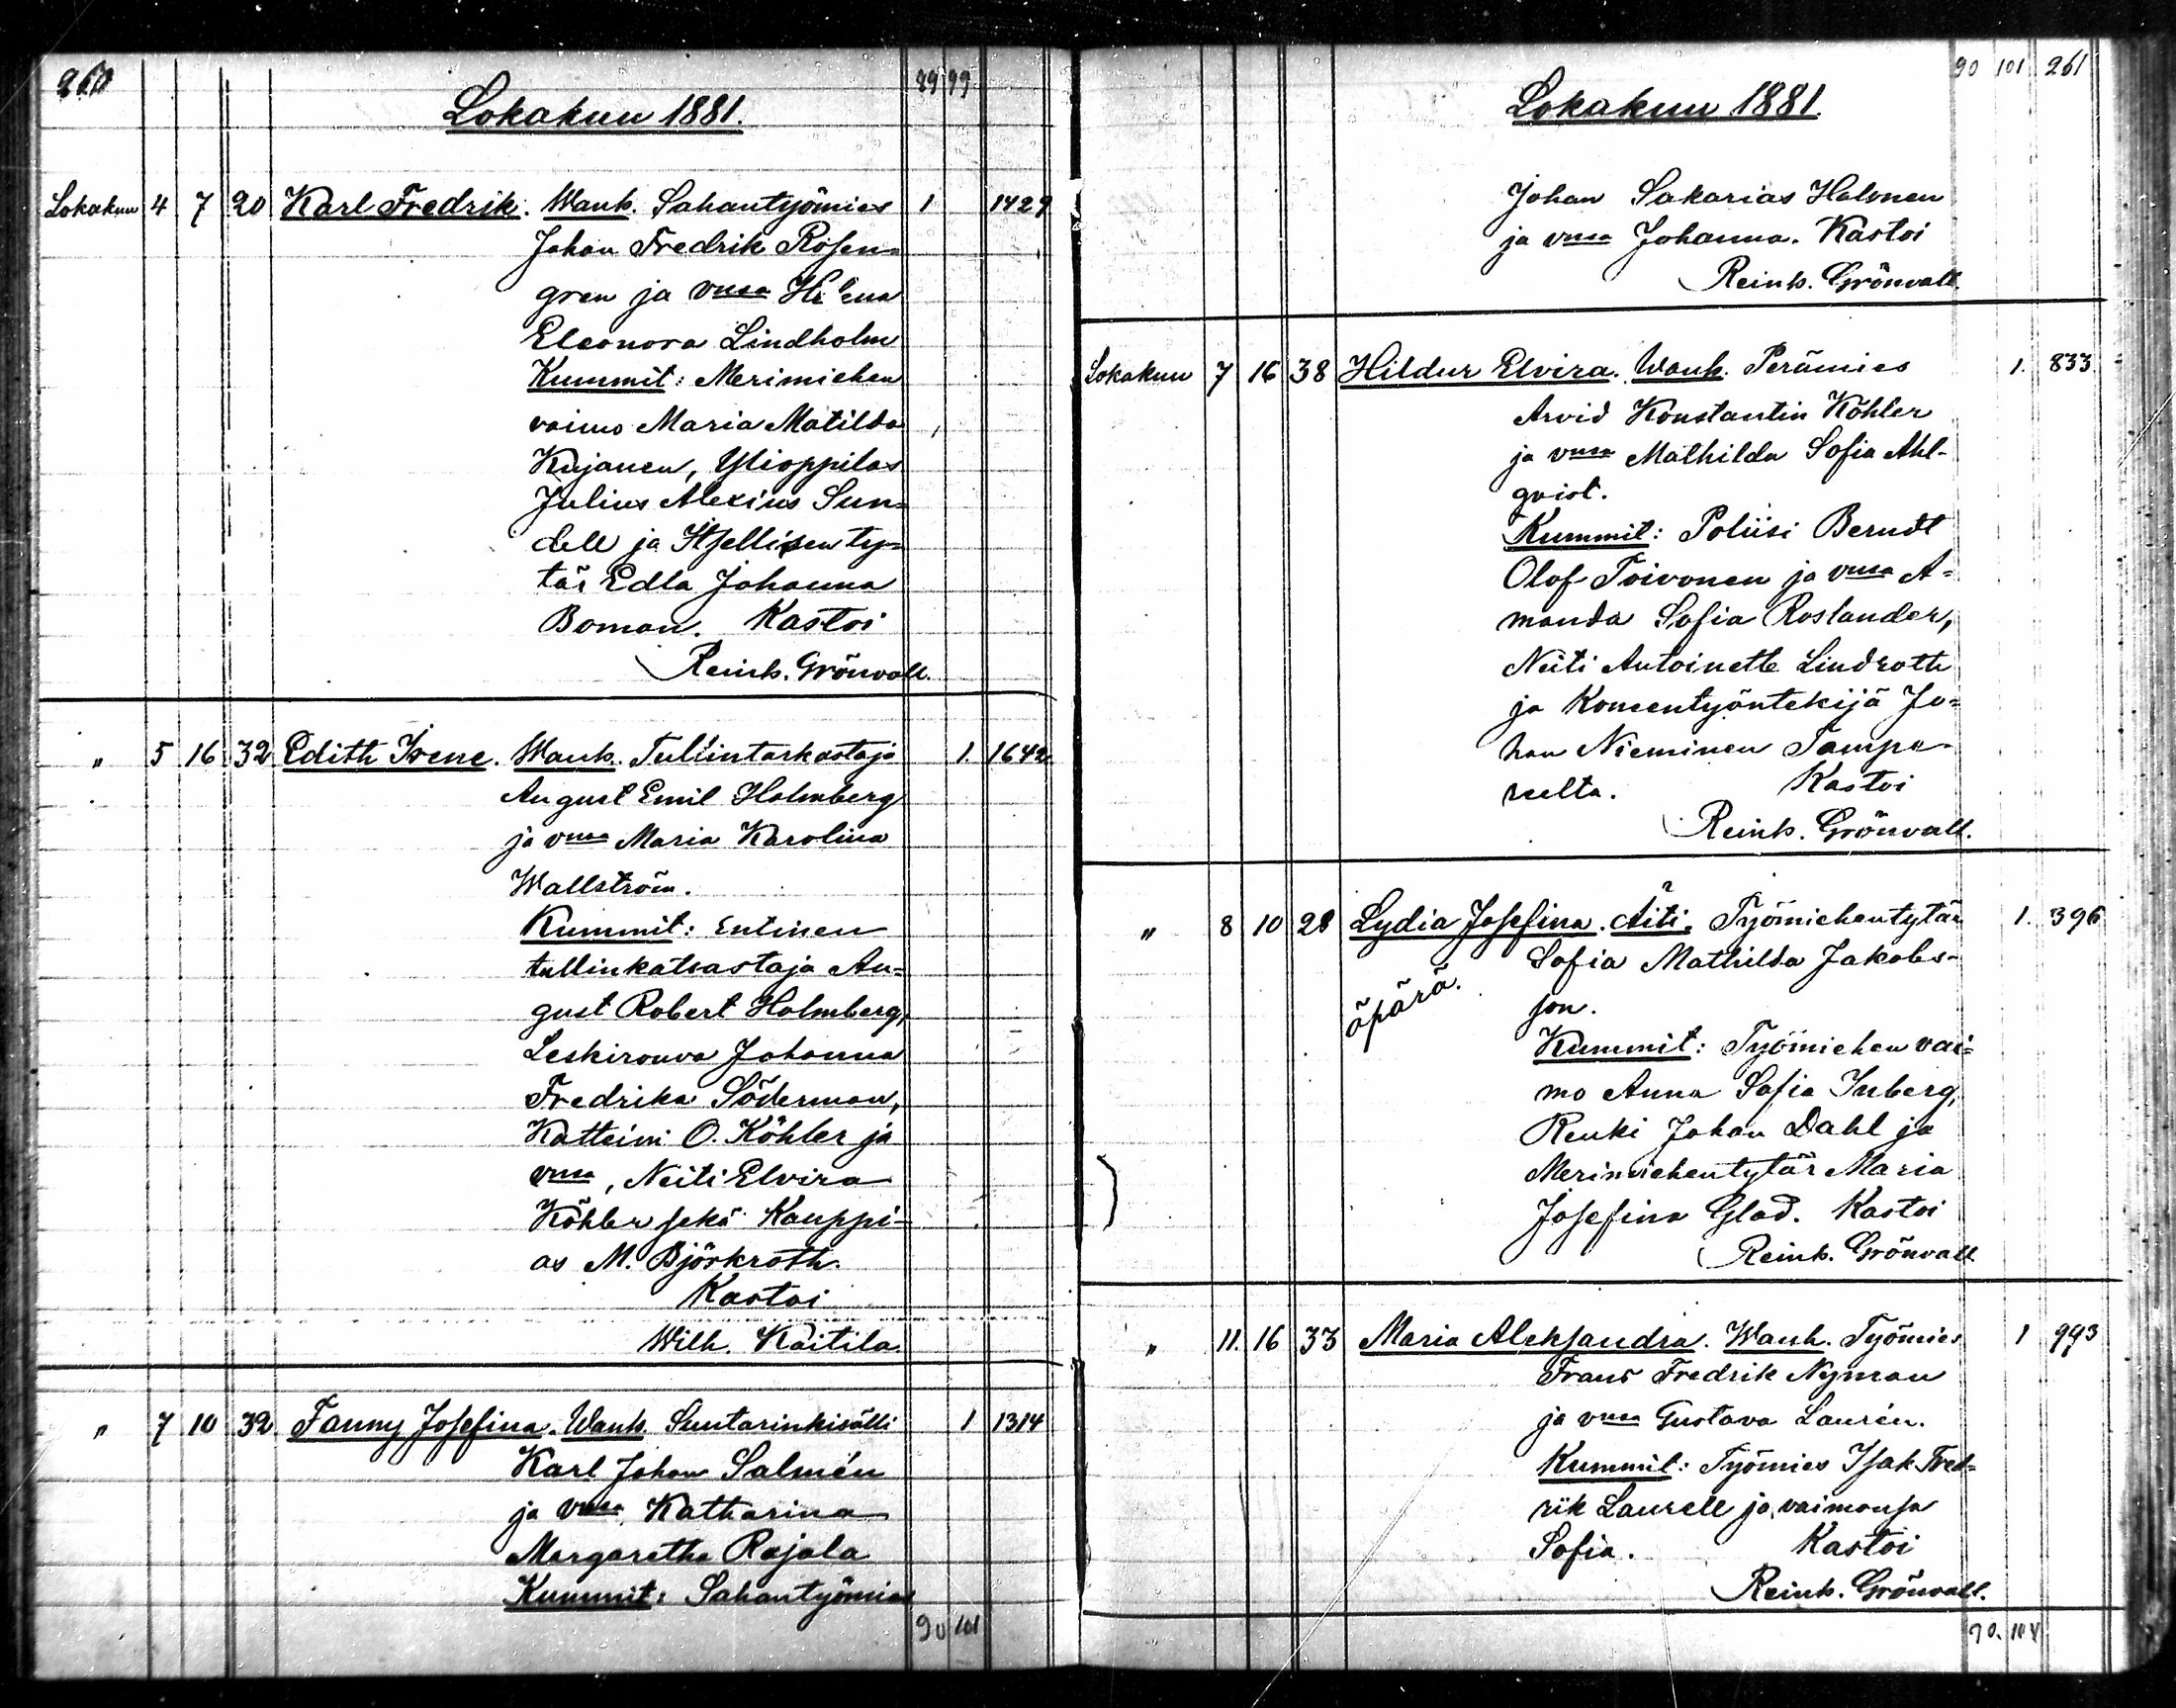 260 89 99
Lokakuu 1881.
Lokakuu 4 7 20 Karl Fredrik. Wanh. Sahantyömies 1 1429
Johan Fredrik Rosen=
gren ja vmsa Helena
Eleonora Lindholm
Kummit: Merimiehen
vaimo Maria Matilda
Kujanen, Ylioppilas
Julius Alexius Sun=
dell ja Itsellisen ty=
tär Edla Johanna
Boman. Kastoi
Reinh. Grönvall.
" 5 16 32 Edith Irene. Wanh. Tullintarkastaja 1. 1642
August Emil Holmberg
ja vmsa Maria Karolina
Wallström.
Kummit: Entinen
tullinkatsastaja Au=
gust Robert Holmberg,
Leskirouva Johanna
Fredrika Söderman,
Katteini O. Köhler ja
vmsa, Neiti Elvira
Köhler sekä Kauppi-
as M. Björkroth.
Kastoi
Wilh. Kaitila
" 7 10 32 Fanny Josefina. Wanh. Suutarinkisälli 1 1314
Karl Johan Salmén
ja vmsa Katharina
Margaretha Rajala
Kummit: Sahantyömies
90 101
90 101 261
Lokakuu 1881.
Johan Sakarias Halonen
ja vmsa Johanna. Kastoi
Reinh. Grönvall.
Lokakuu 7 16 38 Hildur Elvira. Wanh. Perämies 1. 833
Arvid Konstantin Köhler
ja vmsa Mathilda Sofia Ahl-
qvist.
Kummit: Poliisi Berndt
Olof Toivonen ja vmsa A=
manda Sofia Roslander,
Neiti Antoinette Lindroth
ja Koneentyöntekijä Jo=
han Nieminen Tampe-
reelta. Kastoi
Reinh. Grönvall.
" 8 10 28 Lydia Josefina. Äiti. Työmiehentytär 1. 396
Sofia Mathilda Jakobs-
son.
äpärä.
Kummit: Työmiehen vai=
mo Anna Sofia Inberg,
Renki Johan Dahl ja
Merimiehentytär Maria
Josefina Glad. Kastoi
Reinh. Grönvall
" 11. 16 33 Maria Aleksandra. Wanh. Työmies 1 993
Frans Fredrik Nyman
ja vmsa Gustava Laurén.
Kummit: Työmies Isak Fred=
rik Laurell ja vaimonsa
Sofia. Kastoi
Reinh. Grönvall.
90. 104